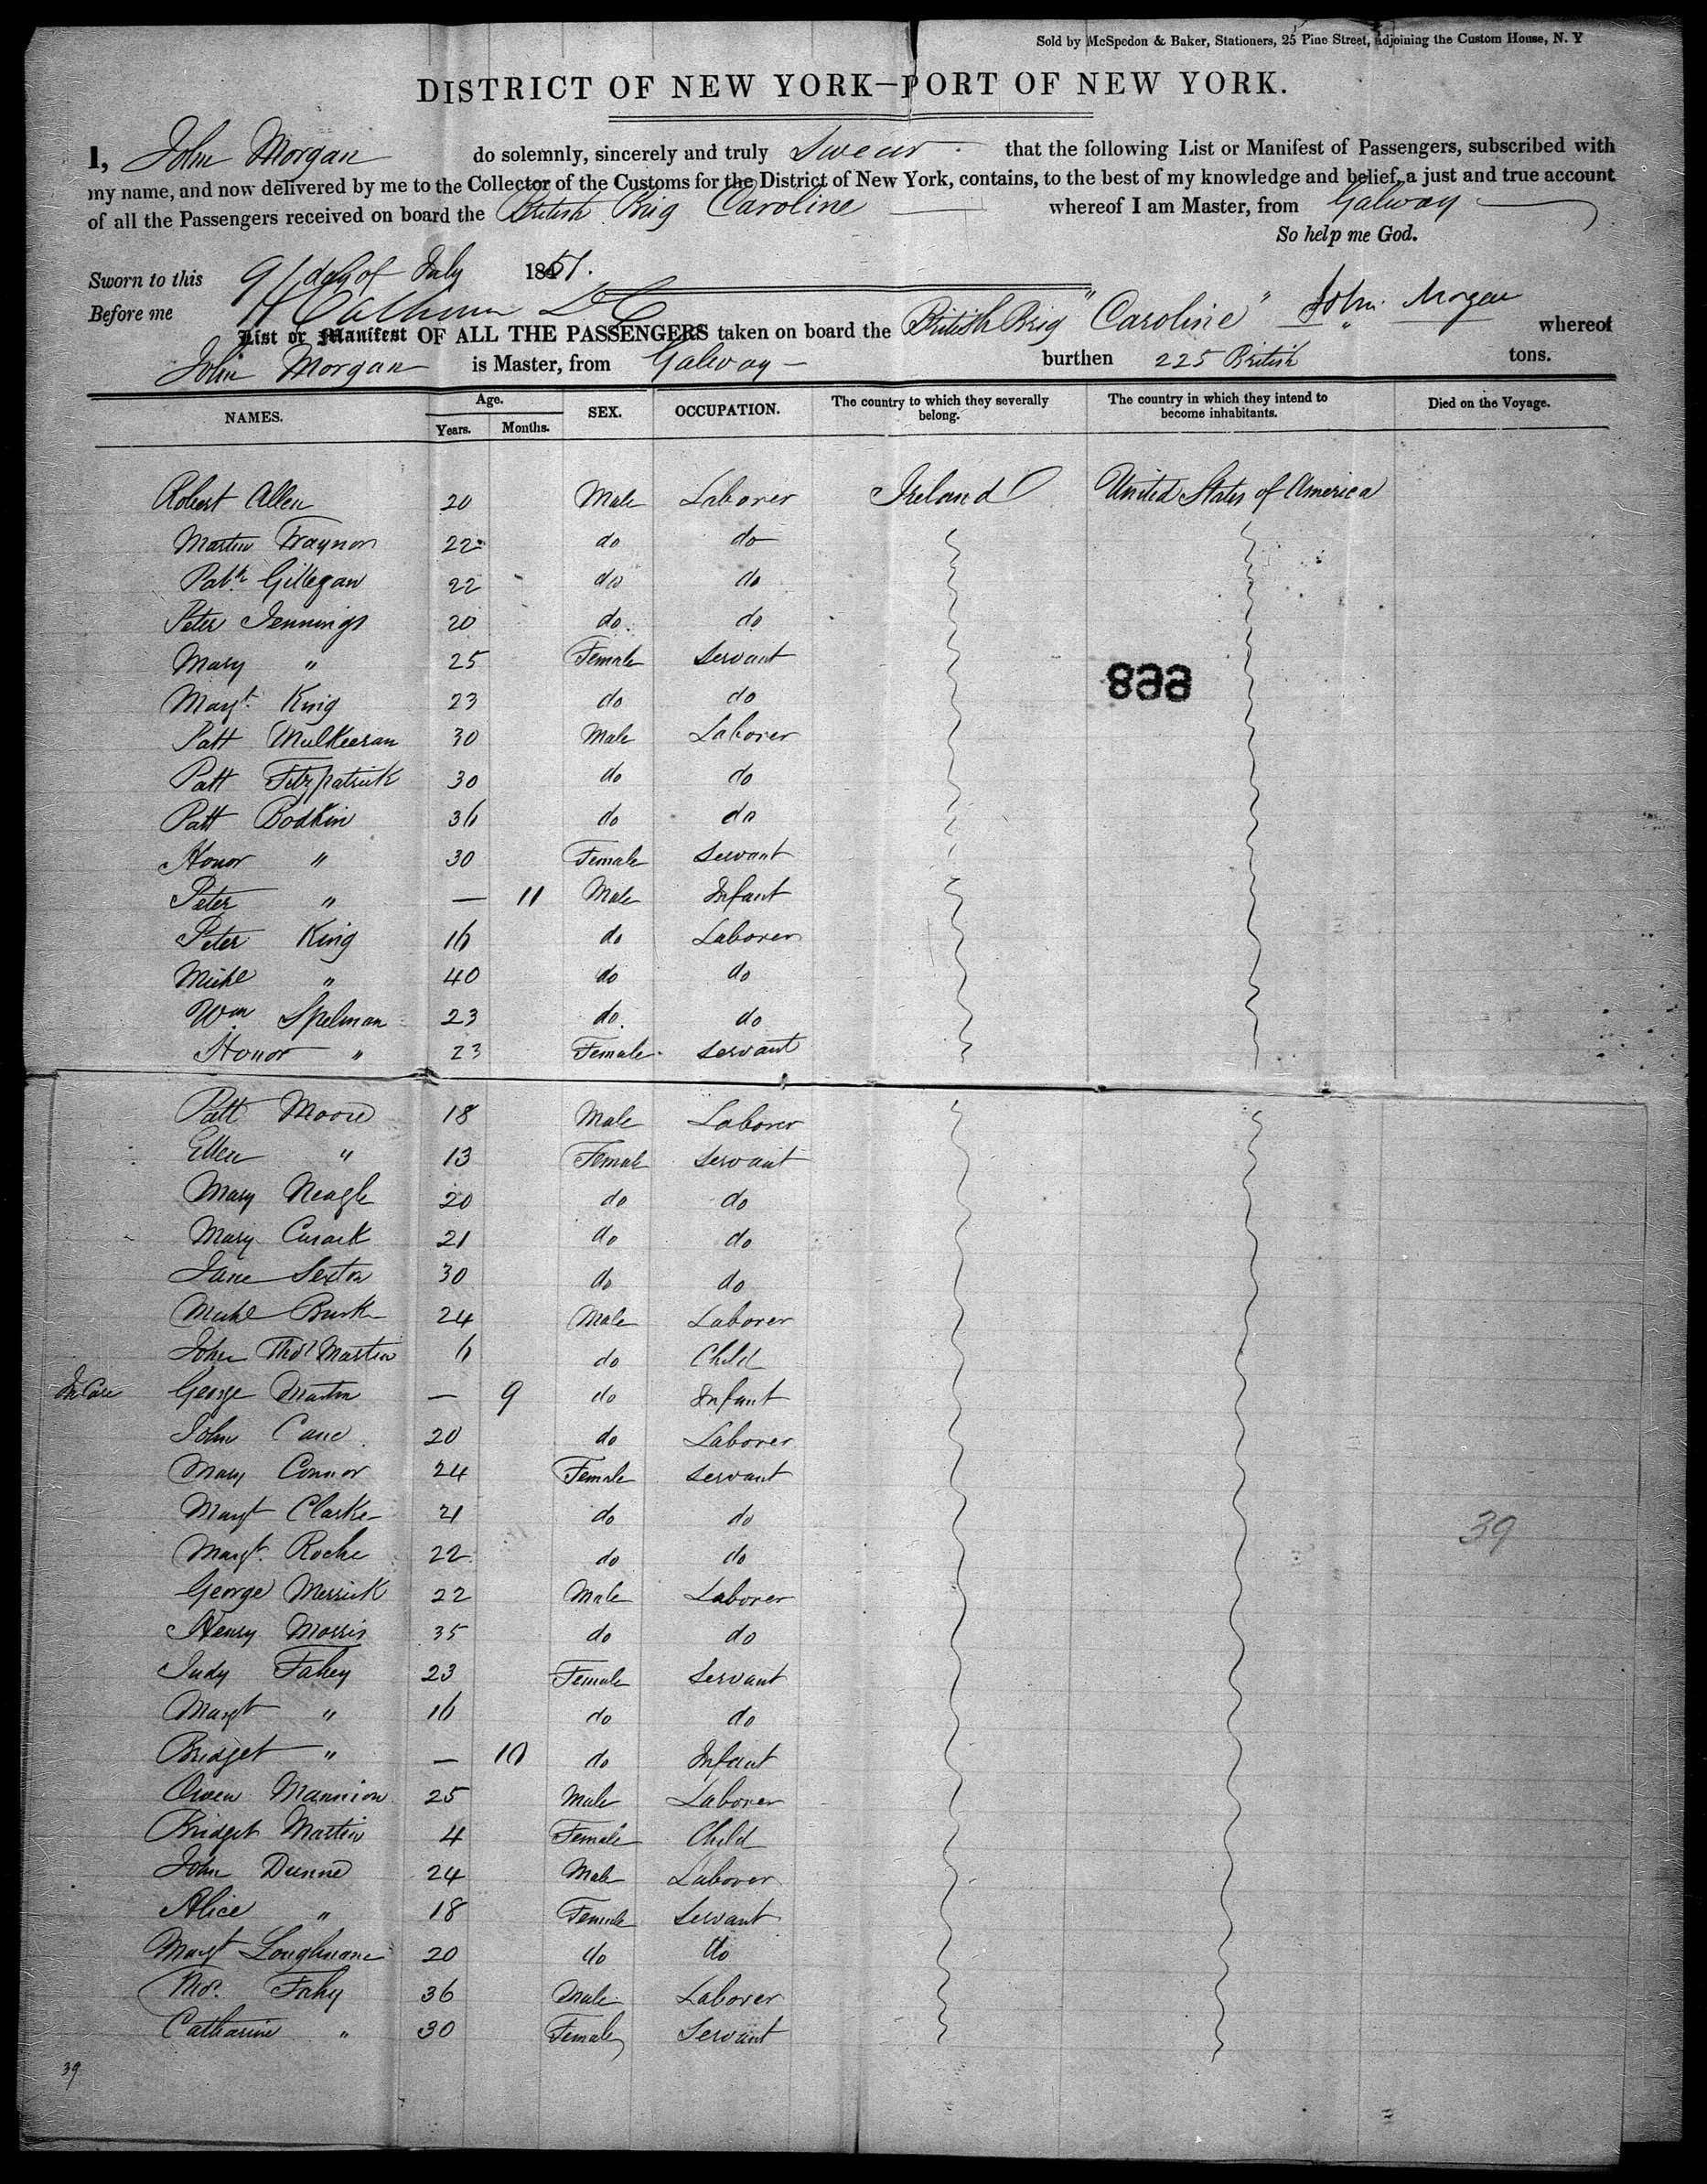 Sold by McSpedon & Baker, Stationers, 25 Pine Street, adjoining the Custom House, N. Y
DISTRICT OF NEW YORK—PORT OF NEW YORK.
I, John Morgan do solemnly, sincerely and truly Swear that the following List or Manifest of Passengers, subscribed with
my name, and now delivered by me to the Collector of the Customs for the District of New York, contains, to the best of my knowledge and belief, a just and true account
of all the Passengers received on board the British Brig Caroline whereof I am Master, from Galway
So help me God.
Sworn to this 9 day of July 1851.
Before me John Morgan
List or Manifest OF ALL THE PASSENGERS taken on board the British Brig "Caroline" whereof
John Morgan is Master, from Galway – burthen 225 British tons.
NAMES. Age. Years. Months. SEX. OCCUPATION. The country to which they severally belong. The country in which they intend to become inhabitants. Died on the Voyage.
Robert Allen 20 Male Laborer Ireland United States of America
Martin Traynor 22 do do
Patk. Gillegan 22 do do
Peter Jennings 20 do do
Mary " 25 Female Servant
899
Margt. King 23 do do
Patt Mulkeeran 30 Male Laborer
Patt Fitzpatrick 30 do do
Patt Bodkin 36 do do
Honor " 30 Female Servant
Peter " — 11 Male Infant
Peter King 16 do Laborer
Michl " 40 do do
Wm Spelman 23 do do
Honor " 23 Female Servant
Patt Moore 18 Male Laborer
Ellen " 13 Female Servant
Mary Neagle 20 do do
Mary Cusack 21 do do
Jane Sexton 30 do do
Michl Burke 24 Male Laborer
John Thos Martin 6 do Child
In Care George Martin — 9 do Infant
John Cane 20 do Laborer
Mary Connor 24 Female Servant
Margt Clarke 21 do do
39
Margt. Roche 22 do do
George Merrick 22 Male Laborer
Henry Morris 35 do do
Judy Fahey 23 Female Servant
Margt " 16 do do
Bridget " — 10 do Infant
Owen Mannion 25 Male Laborer
Bridget Martin 4 Female Child
John Dunne 24 Male Laborer
Alice " 18 Female Servant
Margt Loughnane 20 do do
Thos. Fahy 36 Male Laborer
Catharine " 30 Female Servant
39